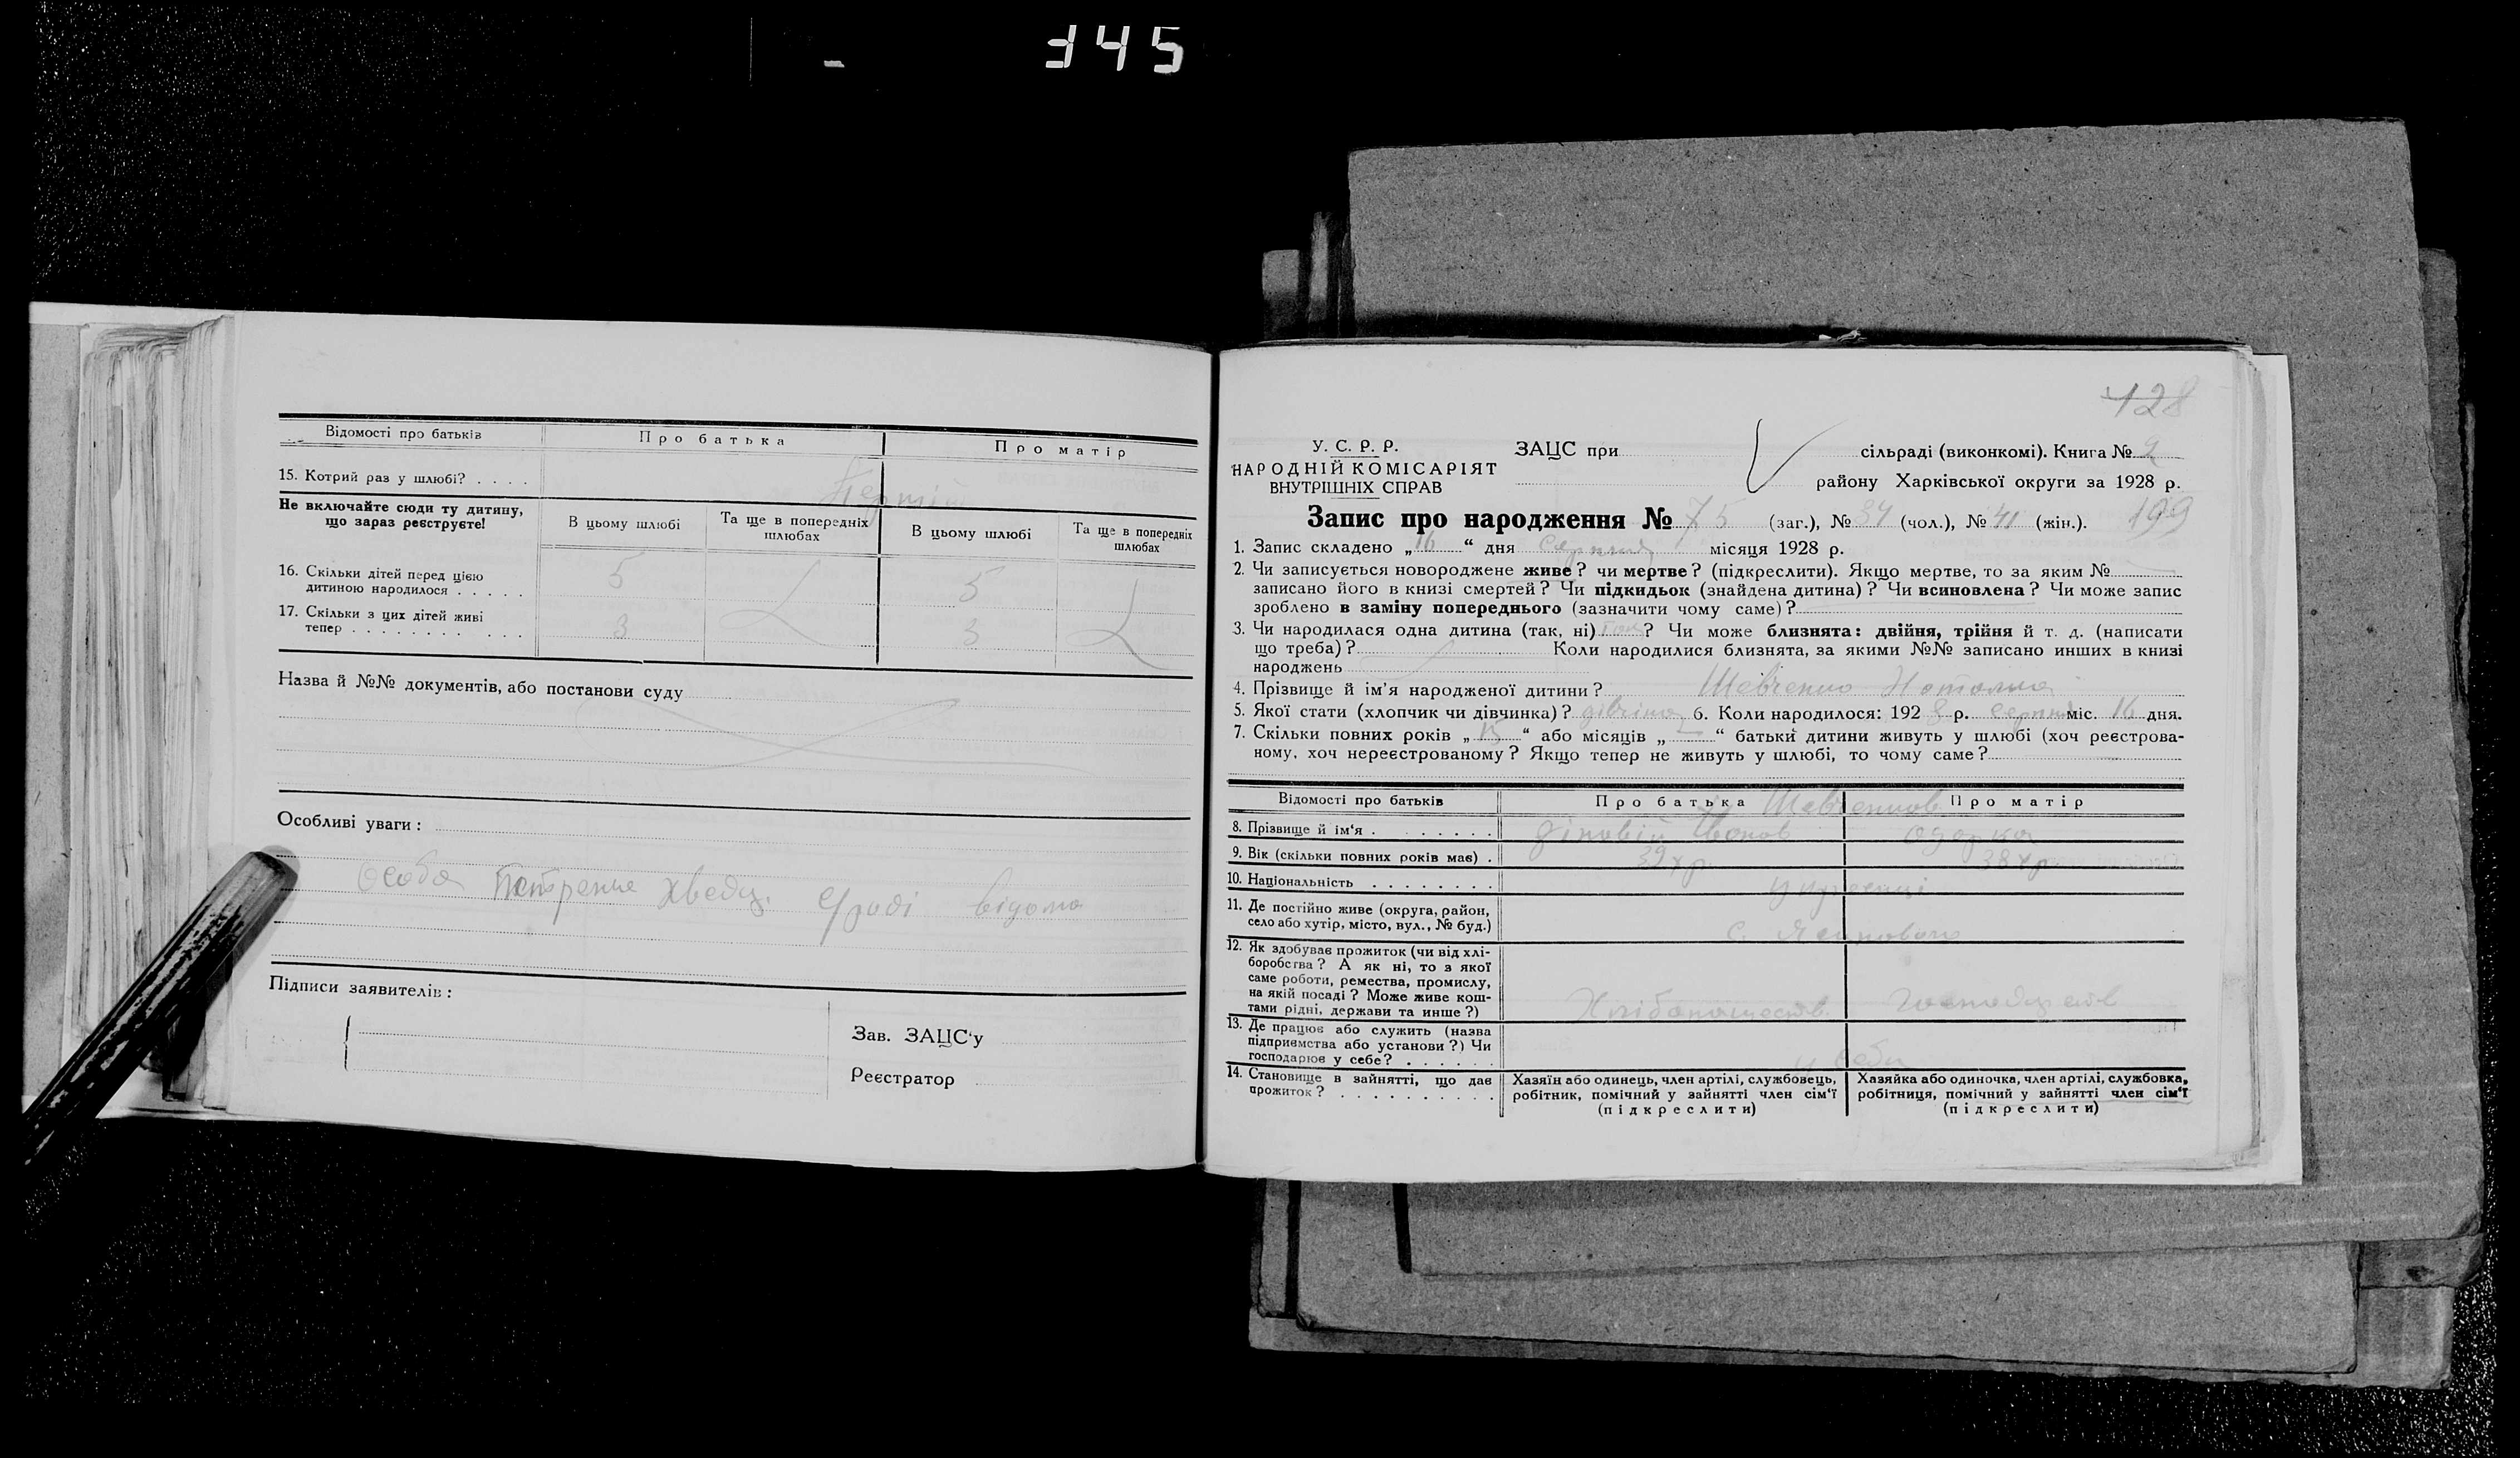 345
Відомості про батьків
Про батька
Про матір
15. Котрий раз у шлюбі? . . . .
Перший
Не включайте сюди ту дитину,
що зараз реєструєте!
В цьому шлюбі
Та ще в попередніх
шлюбах
В цьому шлюбі
Та ще в попередніх
шлюбах
16. Скільки дітей перед цією
дитиною народилося . . . . .
5
5
17. Скільки з цих дітей живі
тепер . . . . . . . . . . .
3
3
Назва й №№ документів, або постанови суду
Особливі уваги:
Особа відома
Підписи заявителів:
Зав. ЗАЦС'у
Реєстратор
428
У. С. Р. Р.
НАРОДНІЙ КОМІСАРІЯТ
ВНУТРІШНІХ СПРАВ
ЗАЦС при
сільраді (виконкомі). Книга № 2
району Харківської округи за 1928 р.
199
Запис про народження № 75 (заг.), № 34 (чол.), № 41 (жін.).
1. Запис складено „16“ дня серпня місяця 1928 р.
2. Чи записується новороджене живе? чи мертве? (підкреслити). Якщо мертве, то за яким №
записано його в книзі смертей? Чи підкидьок (знайдена дитина)? Чи всиновлена? Чи може запис
зроблено в заміну попереднього (зазначити чому саме)?
3. Чи народилася одна дитина (так, ні) ? Чи може близнята: двійня, трійня й т. д. (написати
що треба)? Коли народилися близнята, за якими №№ записано инших в книзі
народжень
4. Прізвище й ім'я народженої дитини? Шевченко Наталка
5. Якої стати (хлопчик чи дівчинка)? дівчина 6. Коли народилося: 1928 р. серпня міс. 16 дня.
7. Скільки повних років „15“ або місяців „—“ батьки дитини живуть у шлюбі (хоч реєстрова-
ному, хоч нереєстрованому? Якщо тепер не живуть у шлюбі, то чому саме?
Відомості про батьків
Про батька
Про матір
Шевченков
8. Прізвище й ім'я . . . . . . . .
Зіновій Іванов
Одарка
9. Вік (скільки повних років має) .
39 р.
38 р.
10. Національність . . . . . . . .
Українці
11. Де постійно живе (округа, район,
село або хутір, місто, вул., № буд.)
с.
12. Як здобуває прожиток (чи від хлі-
боробства? А як ні, то з якої
саме роботи, ремества, промислу,
на якій посаді? Може живе кош-
тами рідні, держави та инше?)
13. Де працює або служить (назва
підприємства або установи?) Чи
господарює у себе? . . . . . .
у себе
14. Становище в зайнятті, що дає
прожиток? . . . . . . . . . . .
Хазяїн або одинець, член артілі, службовець,
робітник, помічний у зайнятті член сім'ї
(підкреслити)
Хазяйка або одиночка, член артілі, службовка,
робітниця, помічний у зайнятті член сім'ї
(підкреслити)